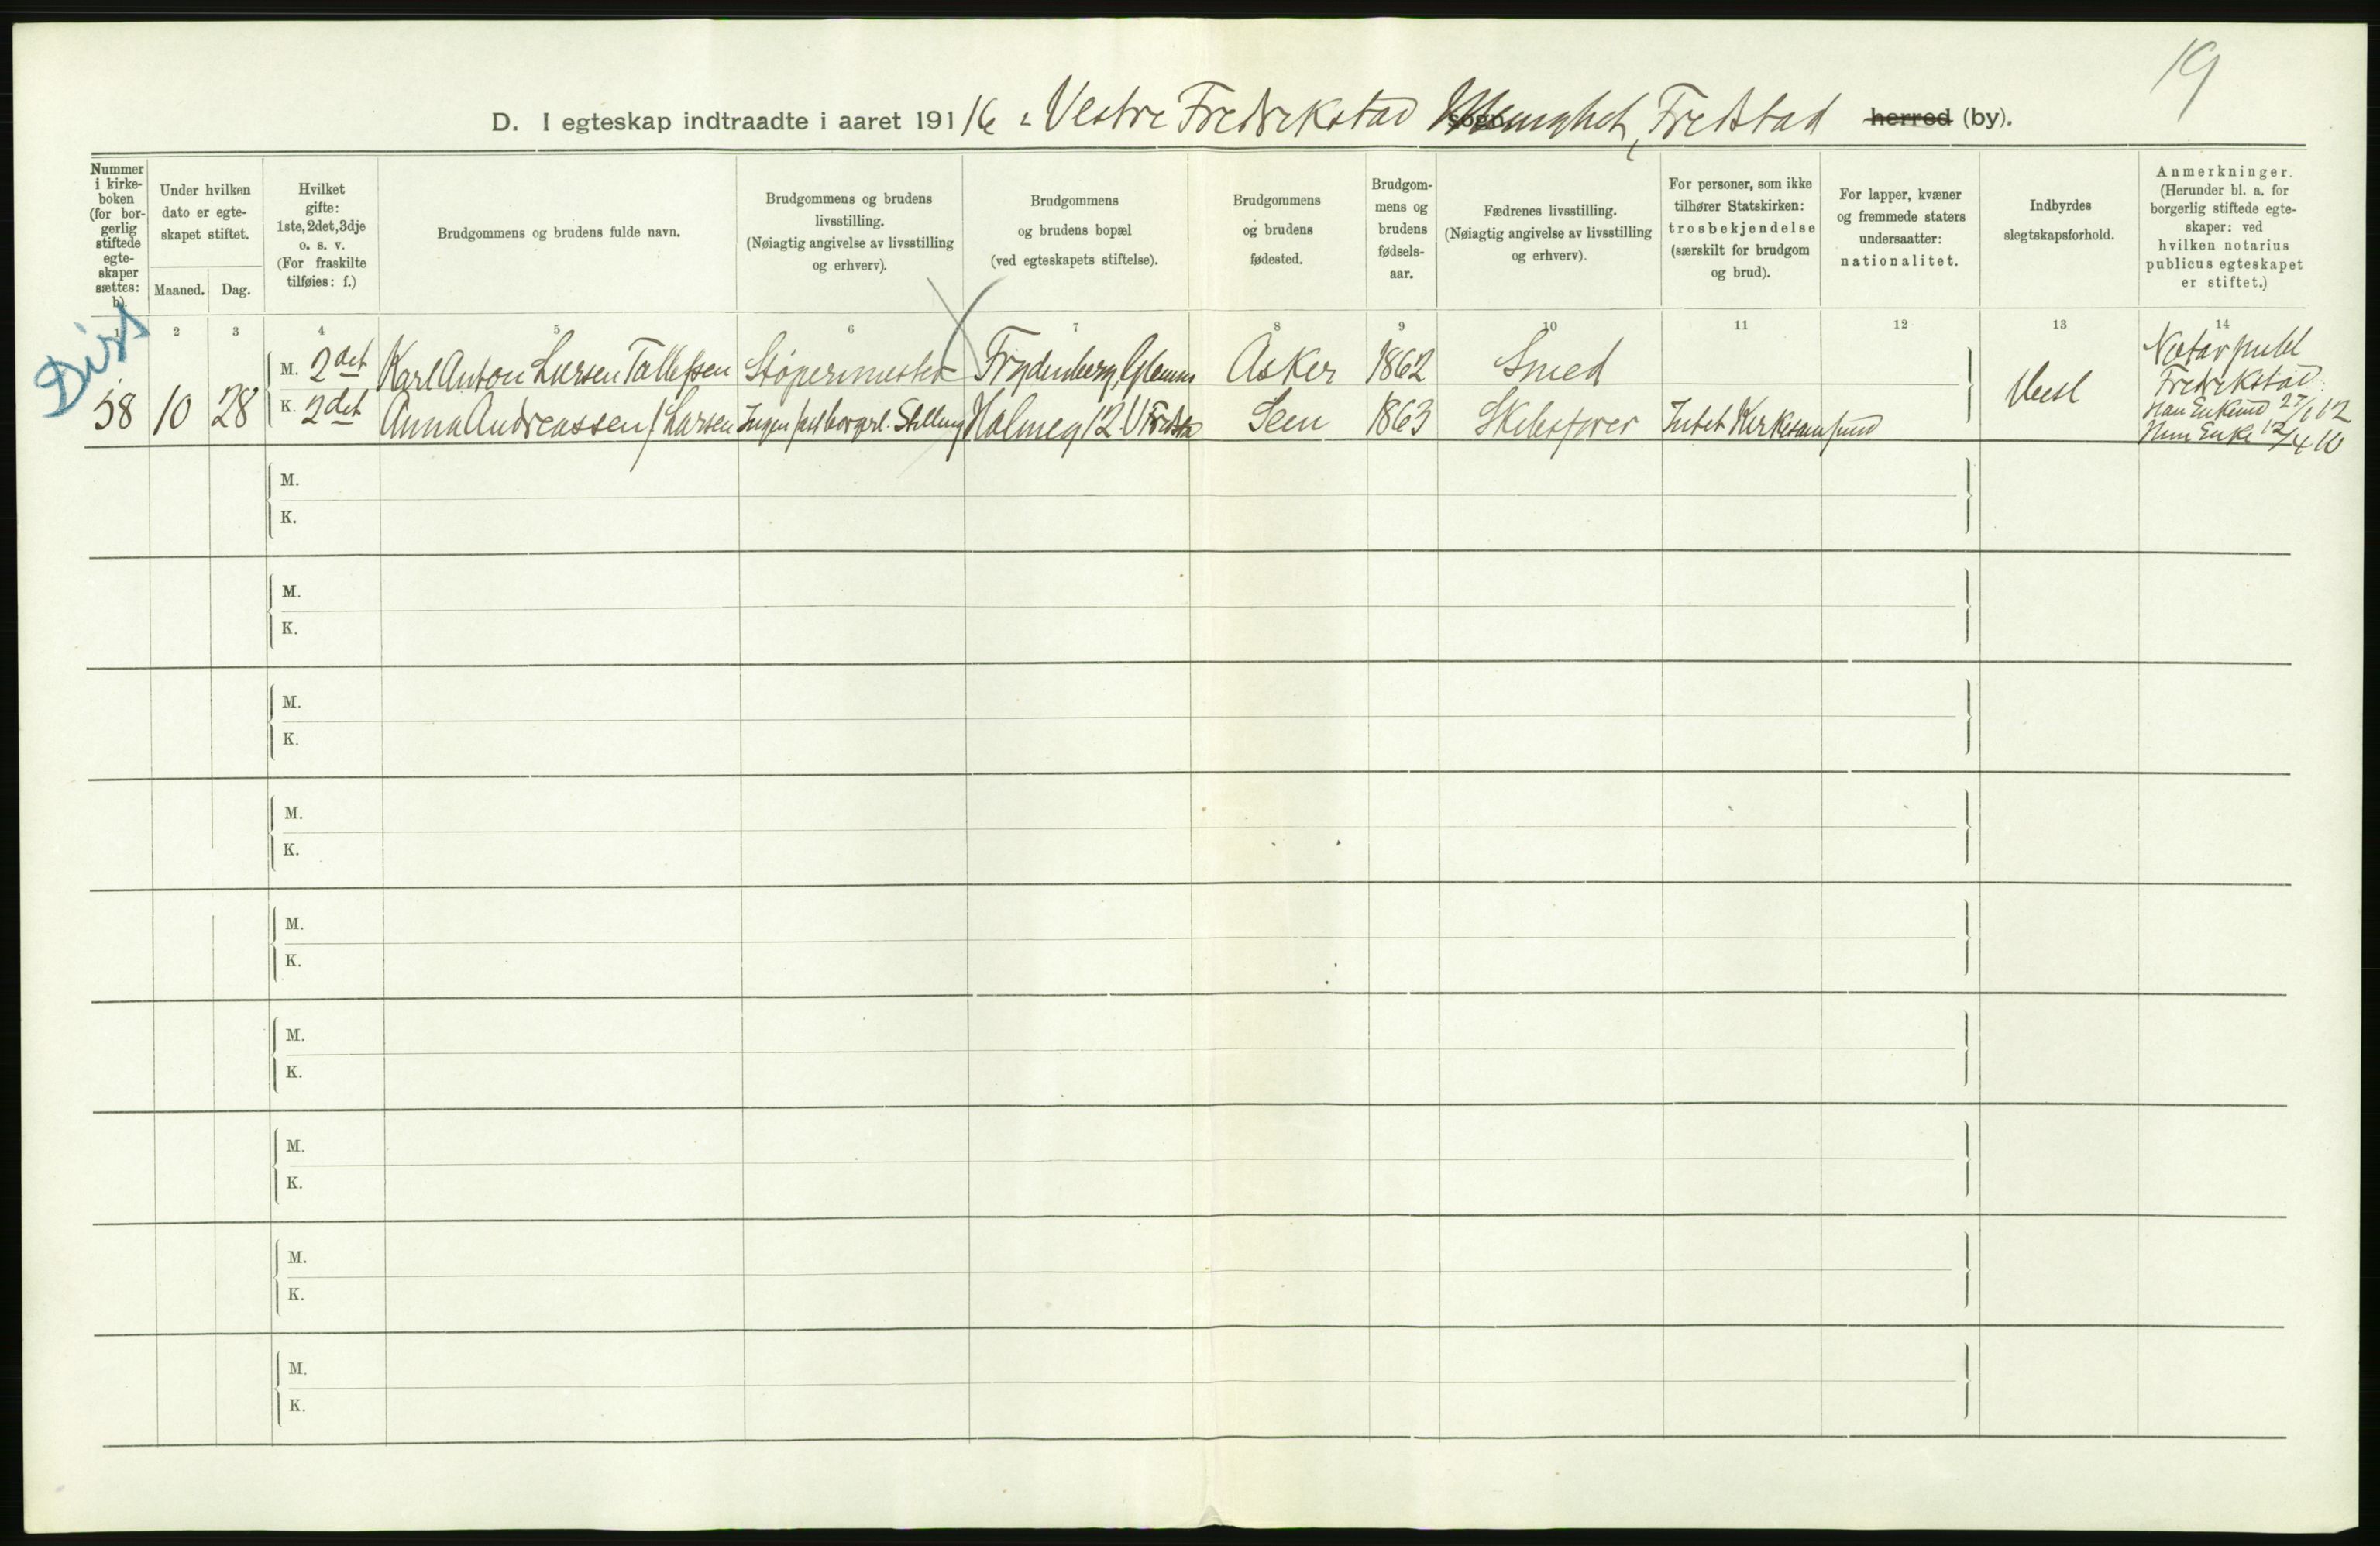 19
D. I egteskap indtraadte i aaret 1916 i Vestre Fredrikstad Menighet, Fredstad herred (by).
Nummer i kirkeboken (for borgerlig stiftede egteskaper sættes: b).
Under hvilken dato er egteskapet stiftet.
Maaned. Dag.
Hvilket gifte: 1ste, 2det, 3dje o. s. v. (For fraskilte tilføies: f.)
Brudgommens og brudens fulde navn.
Brudgommens og brudens livsstilling. (Nøiagtig angivelse av livsstilling og erhverv).
Brudgommens og brudens bopæl (ved egteskapets stiftelse).
Brudgommens og brudens fødested.
Brudgommens og brudens fødselsaar.
Fædrenes livsstilling. (Nøiagtig angivelse av livsstilling og erhverv).
For personer, som ikke tilhører Statskirken: trosbekjendelse (særskilt for brudgom og brud).
For lapper, kvæner og fremmede staters undersaatter: nationalitet.
Indbyrdes slegtskapsforhold.
Anmerkninger. (Herunder bl. a. for borgerlig stiftede egteskaper: ved hvilken notarius publicus egteskapet er stiftet.)
1 2 3 4 5 6 7 8 9 10 11 12 13 14
Diss
58 10 28
M. 2det Karl Anton Larsen Tollefsen Støpermester Frydenberg, Glemm Asker 1862 Smed
K. 2det Anna Andreassen f. Larsen Ingen fast borgerl. Stilling Holmeg 12 V Fredstad Seem 1863 Skibsfører Intet Kirkesamfund
Notar publ
Fredrikstad
Han Enkem 27/1 12
Hun Enke 12/4 10
M.
K.
M.
K.
M.
K.
M.
K.
M.
K.
M.
K.
M.
K.
M.
K.
M.
K.